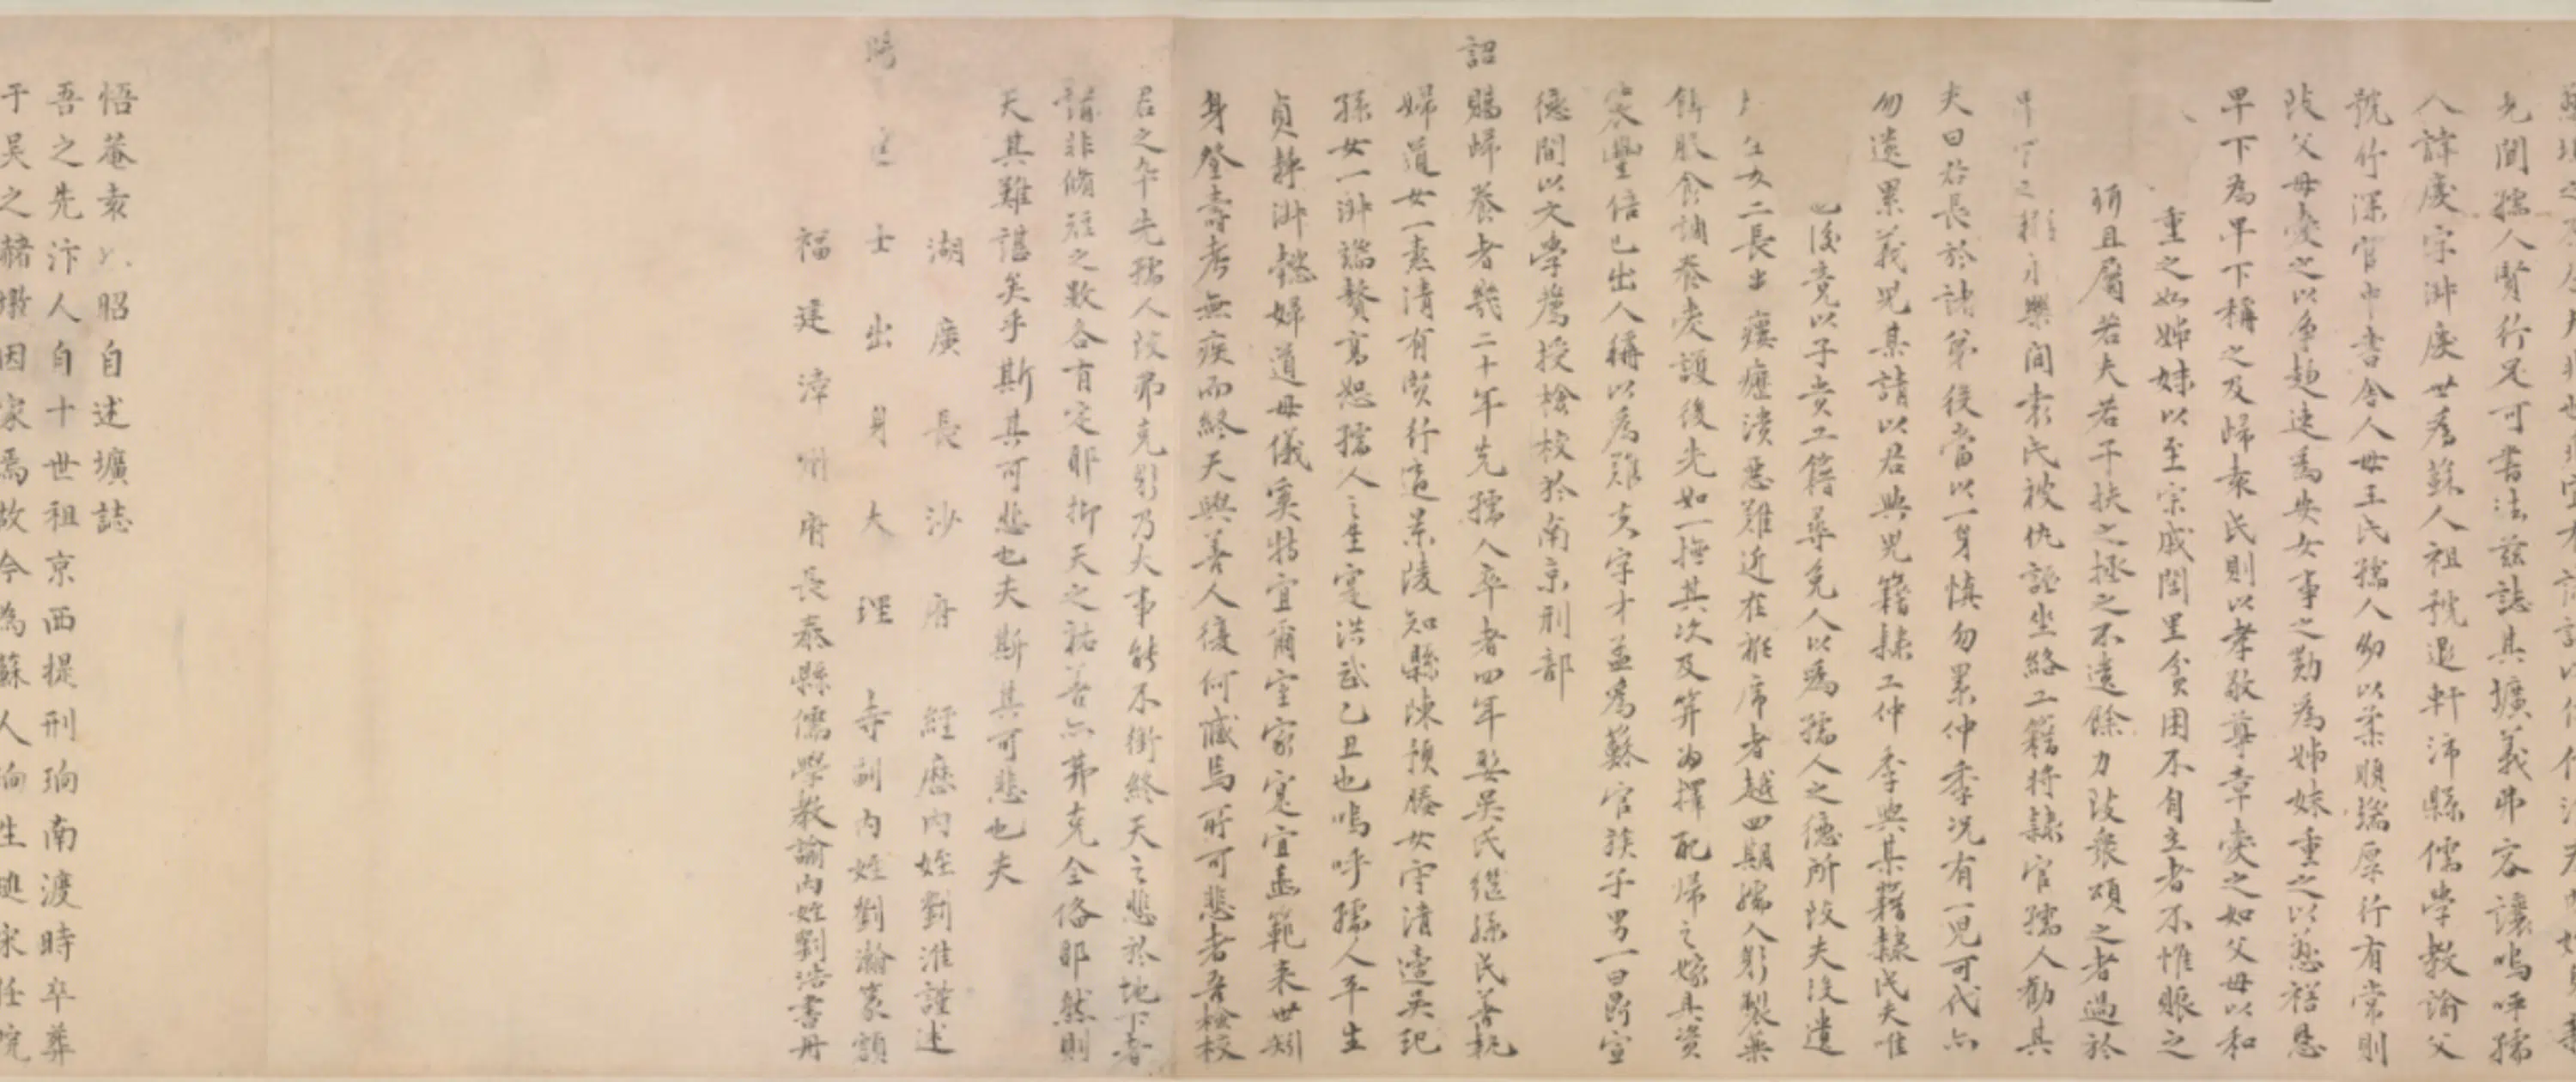 先間孺人賢行足可書法茲誌其壙義弗容讓嗚呼孺
人諱庱宗諱庱世為蘇人祖號退軒沛縣儒學教諭父
號竹深官中書舍人母王氏孺人幼以柔順端厚行有常則
父母愛之以爭趨速為失女事之勤為姊妹重之以慈禧恩
早下為早下稱之及歸袁氏則以孝敬尊章愛之如父母以和
重之如姊妹以至宗戚閭里貧困不自立者不惟賑之
且屬若夫若干扶之拯之不遺餘力眾頌之者過於
永樂間袁氏被仇誣坐絡工籍將隸官孺人勸其
夫曰君長於諸弟後當以一身慎勿累仲季況有一兒可代亦
勿遺累義兒某請以君與兒籍隸工仲季與某籍隸民夫唯
也後竟以子貴工籍尋免人以為孺人之德所致夫沒遺
女二長出瘻癧潰惡難近在袵席者越四期孺人躬製藥
餌服食調養愛護後先如一撫其次及笄為擇配歸之嫁具資
裝豐倍已出人稱以為難丈字才益為蘇官族子男一曰昺宣
德間以文學薦授檢校於南京刑部
詔賜歸養者幾二十年先孺人卒者四年娶吳氏繼孫氏善執
婦道女一素清有賢行適景陵知縣陳預媵女守清適吳玘
孫女一淑端贅高恕孺人之生寔洪武乙丑也嗚呼孺人平生
貞靜淑懿婦道母儀奚特宜爾室家寔宜壼範來世矧
身登壽考無疾而終天與善人復何憾焉所可悲者吾檢校
君之卒先孺人弗克躬乃大事能不銜終天之悲於地下者
請非脩短之數各有定耶抑天之祐善亦弗克全俻耶然則
天其難諶矣乎斯其可悲也夫斯其可悲也夫
湖廣長沙府經歷內姪劉淮謹述
賜進士出身大理寺副內姪劉瀚篆額
福建漳州府長泰縣儒學教諭內姪劉浩書丹
悟菴袁以昭自述壙誌
吾之先汴人自十世祖京西提刑珦南渡時卒葬
于吳之赭墩因家焉故今為蘇人珦生䢖宋任院